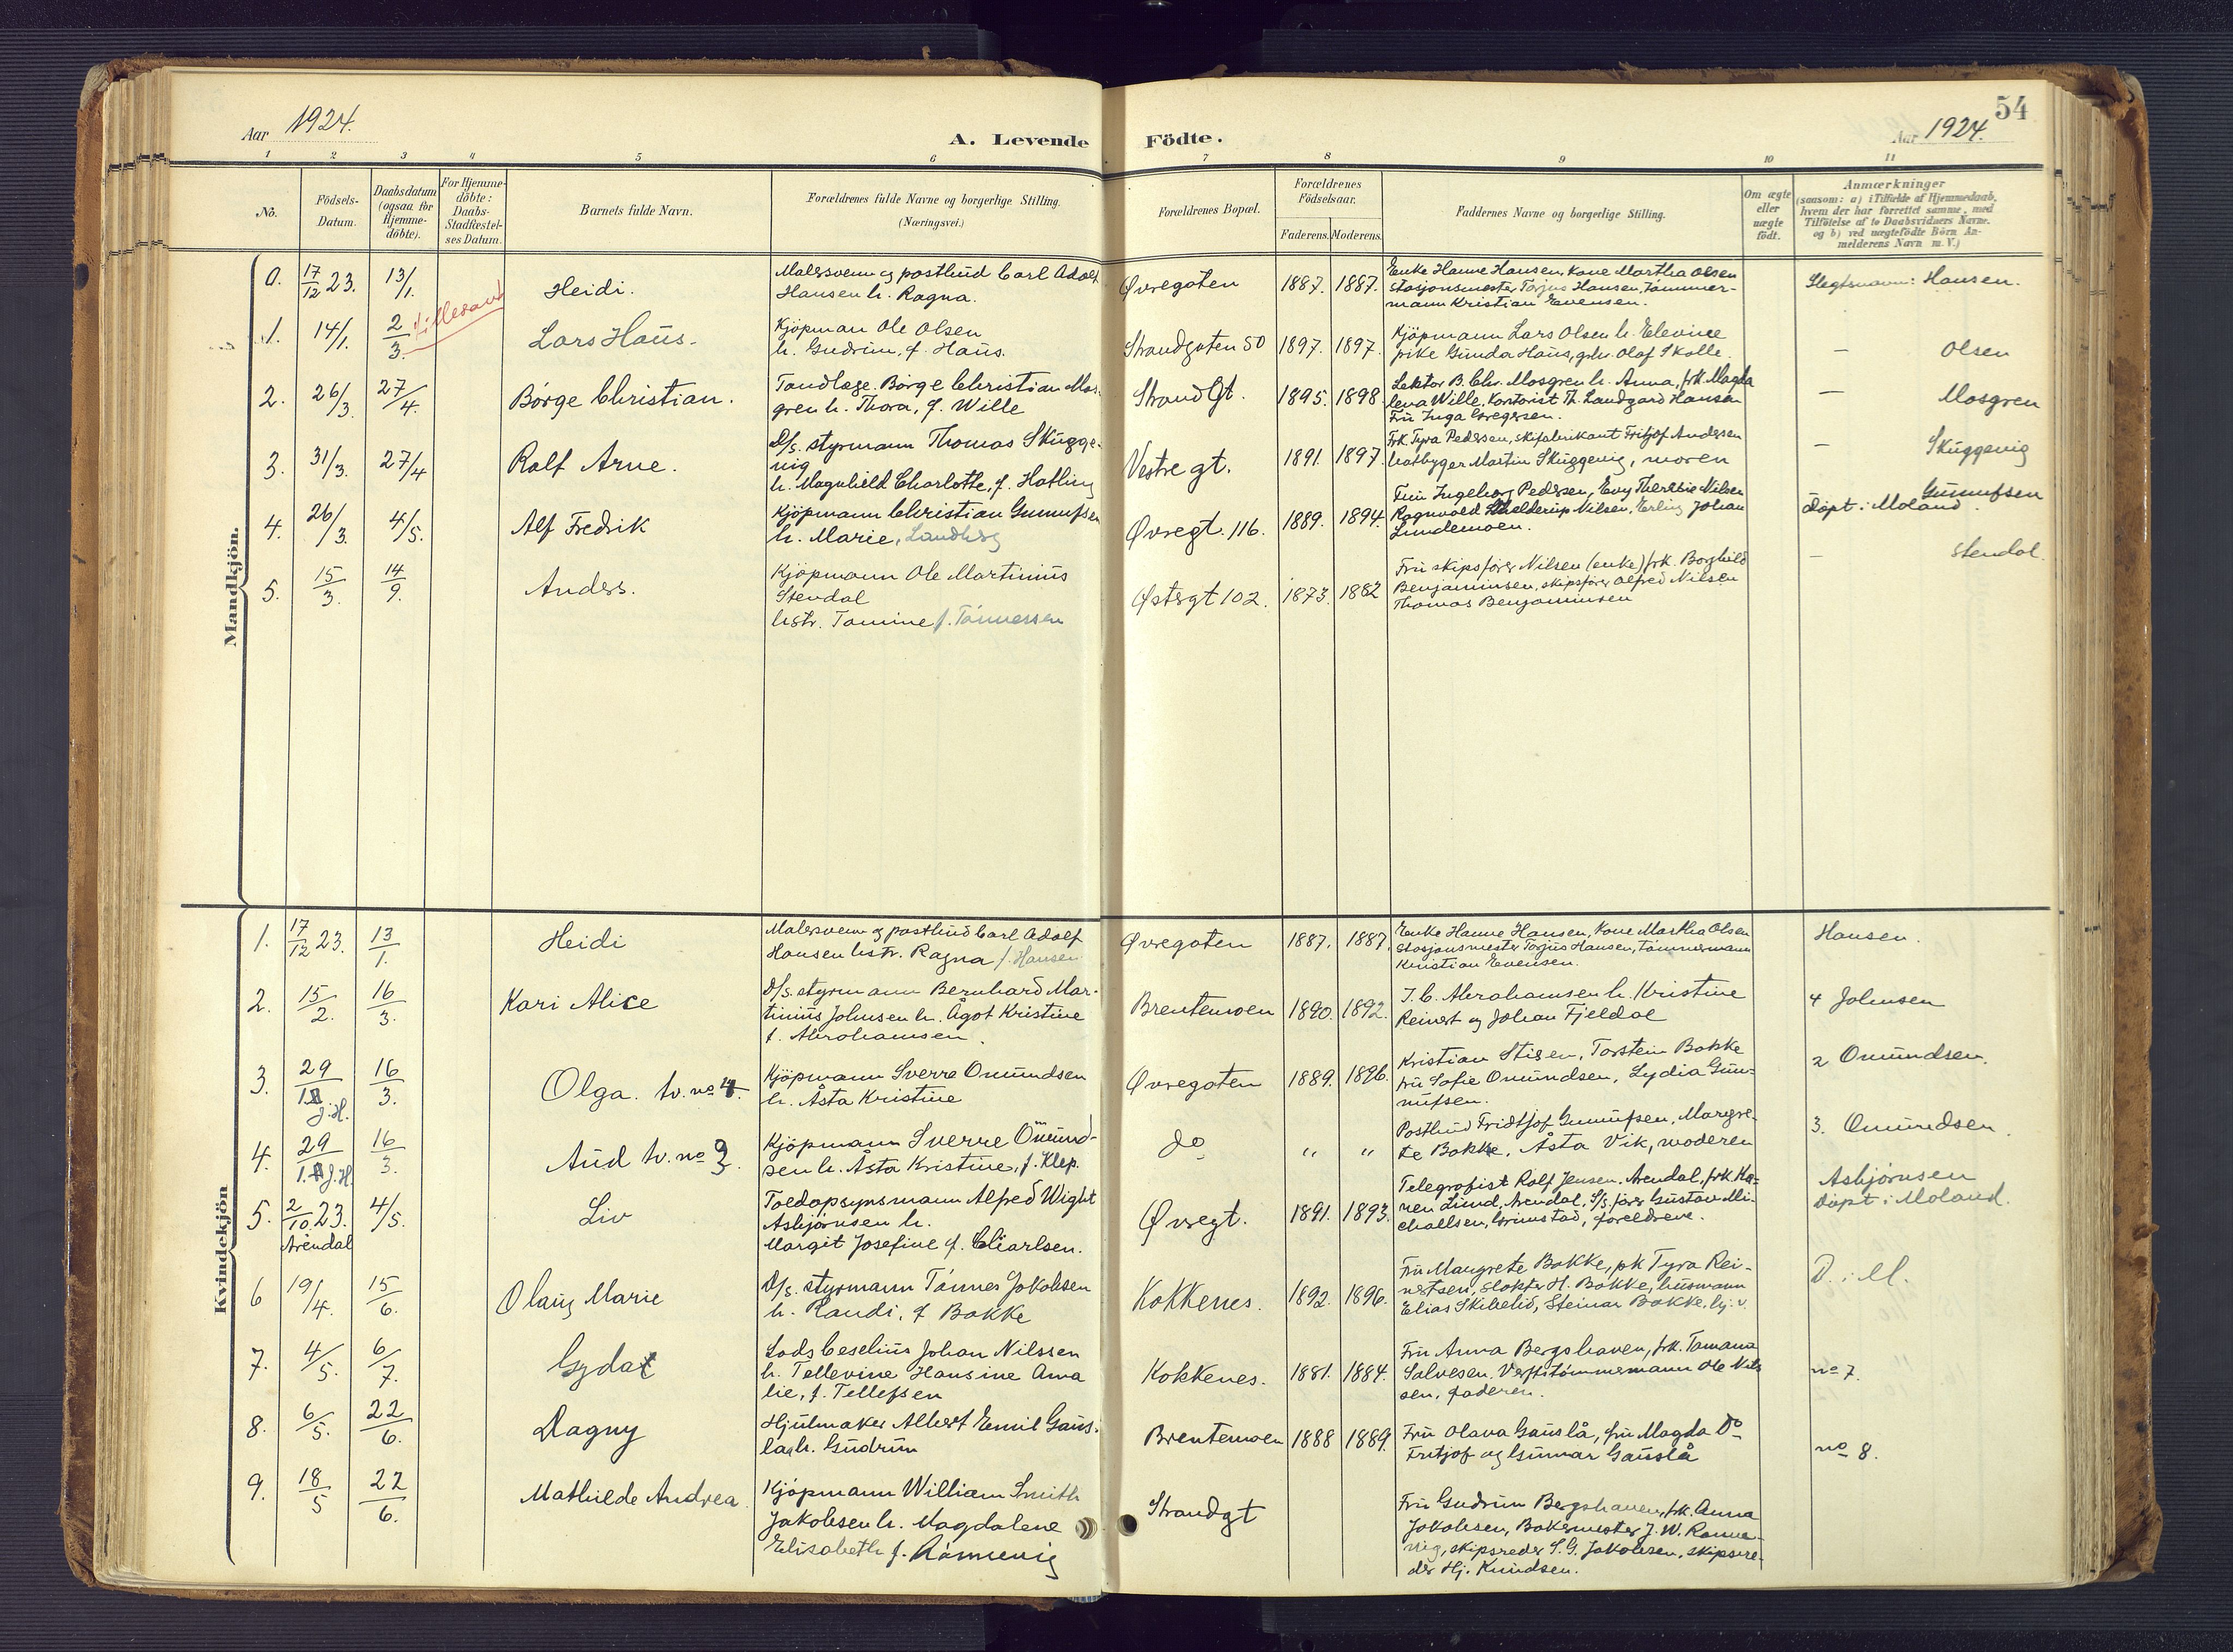 54
Aar 1924.
A. Levende Födte.
Aar 1924.
1 2 3 4 5 6 7 8 9 10 11
No.
Födsels-
Datum.
Daabsdatum
(ogsaa for
Hjemme-
döbte).
For Hjemme-
döbte:
Daabs-
Stadfæstel-
ses Datum.
Barnets fulde Navn.
Forældrenes fulde Navne og borgerlige Stilling.
(Næringsvei.)
Forældrenes Bopæl.
Forældrenes
Födselsaar.
Faderens. Moderens.
Faddernes Navne og borgerlige Stilling.
Om ægte
eller
uægte
födt.
Anmærkninger
(saasom: a) i Tilfælde af Hjemmedaab,
hvem der har forrettet samme, med
Tilföielse af to Daabsvidners Navne,
og b) ved uægtefödte Börn An-
melderens Navn m. V.)
Mandkjön.
0. 17/12 23. 13/1. Heidi.
Malersvenn og postbud Carl Adolf
Hansen h. Ragna.
Øvregaten 1887. 1887.
Enke Hanne Hansen, Kone Martha Olsen
stasjonsmester Torjus Hansen, tömmer-
mann Kristian Evensen.
Slegtsnavn: Hansen.
1. 14/1. 2/3. Lillesand Lars Haus.
Kjöpman Ole Olsen
h. Gudrun, f. Haus.
Strandgaten 50 1897. 1897.
Kjöpmann Lars Olsen h. Elevine
pike Gunda Haus, grbr. Olaf Skolle.
— Olsen
2. 26/3. 27/4. Börge Christian.
Tandlæge. Börge Christian Mos-
gren h. Thora, f. Wille
Strandgt. 1895. 1898
Lektor B. Chr. Mosgren h. Anna, frk. Magda
lena Wille, Kontorist Th. Landgard Hansen
Fru Inga Gregersen.
— Mosgren
3. 31/3. 27/4 Ralf Arne.
D/s. styrmann Thomas Skugge-
vig
h. Magnhild Charlotte, f. Hatling
Vestre gt. 1891. 1897.
Frk. Tyra Pedersen, skifabrikant Fritjof Andersen
baatbyger Martin Skuggevig, moren
— Skuggevig
4. 26/3. 4/5. Alf Fredrik
Kjöpmann Christian Gunnufsen
h. Marie, Landberg
Øvregt. 116. 1889. 1894.
Fru Ingeborg Pedersen, Evy Theresie Nilsen
Ragnvold Skelderup Nilsen, Erling Johan
Lundemoen.
Gunnufsen
döpt i Moland.
5. 15/3. 14/9. Anders.
Kjöpmann Ole Martinius
Stendal
hstr. Tomine f. Tönnessen
Østergt 102. 1873. 1882
Fru skipsförer Nilsen (enke) frk. Borghild
Benjaminsen, skipsförer Alfred Nilsen
Thomas Benjaminsen
— Stendal.
Kvindekjön
1. 17/12 23. 13/1. Heidi
Malersvenn og postbud Carl Adolf
Hansen hstr. Ragna f. Hansen
Øvregaten 1887. 1887.
Enke Hanne Hansen, Kone Martha Olsen
Stasjonsmester Torjus Hansen, tömmermann
Kristian Evensen.
Hansen.
2. 15/2. 16/3. Kari Alice
D/s. styrmann Bernhard Mar-
tinius Johnsen h. Ågot Kristine
f. Abrahamsen.
Brentemoen 1890. 1892.
J. C. Abrahamsen h. Kristine
Reinert og Johan Fjeldal
4 Johnsen
3. 29/1 J.H. 16/3. Olga. tv. no 4.
Kjöpmann Sverre Omundsen
h. Åsta Kristine
Øvregaten 1889. 1896.
Kristian Stisen, Torstein Bakke
fru Sofie Omundsen, Lydia Gun-
nufsen.
2 Omundsen.
4. 29/1. J.H. 16/3. Aud tv. no 3.
Kjöpmann Sverre Omund-
sen h. Åsta Kristine, f. Klep.
do „ „
Postbud Fridtjof Gunnufsen, Margre-
te Bakke, Åsta Vik, moderen
3. Omundsen.
5. 2/10. 23. Arendal 4/5. Liv
Toldopsynsmann Alfred Wight
Asbjörnsen h.
Margit Josefine f. Charlsen.
Øvregt. 1891. 1893.
Telegrafist Rolf Jensen. Arendal, frk. Ka-
ren Lund, Arendal, S/s. förer Gustav Mi-
challsen, Grimstad, foreldrene.
Asbjörnsen
Döpt i Moland.
6 19/4. 15/6. Olaug Marie
D/s. styrmann Tönnes Jakobsen
h. Randi, f Bakke
Kokkenes. 1892. 1896.
Fru Maugrete Bakke, pk Tyra Rei-
nertsen, slakter H. Bakke, husmann
Elias Skibelid, Steinar Bakke, hj. v.
D. i M.
7. 4/5. 6/7. Gyda
Lods Ceselius Johan Nilssen
h. Tellevine Hansine Ama
lie, f. Tellefsen
Kokkenes. 1881. 1884.
Fru Anna Bergshaven, frk. Tomana
Salvesen. Verftstömmermann Ole Nils
sen, faderen.
no 7.
8. 6/5. 22/6. Dagny
Hjulmaker Albert Emil Gaus-
laa h. Gudrun
Brentemoen 1888 1889.
Fru Olava Gauslå, fru Magda Do
Fritjof og Gunnar Gauslå
no 8.
9. 18/5 22/6. Mathilde Andrea.
Kjöpmann William Smith
Jakobsen h. Magdalene
Elisabeth f. Rönnevig
Strandgt
Fru Gudrun Bergshaven, frk. Anna
Jakobsen, Bakermester J. W. Rönne-
vig, skipsreder S. G. Jakobsen, skipsre-
der Hj. Knudsen.